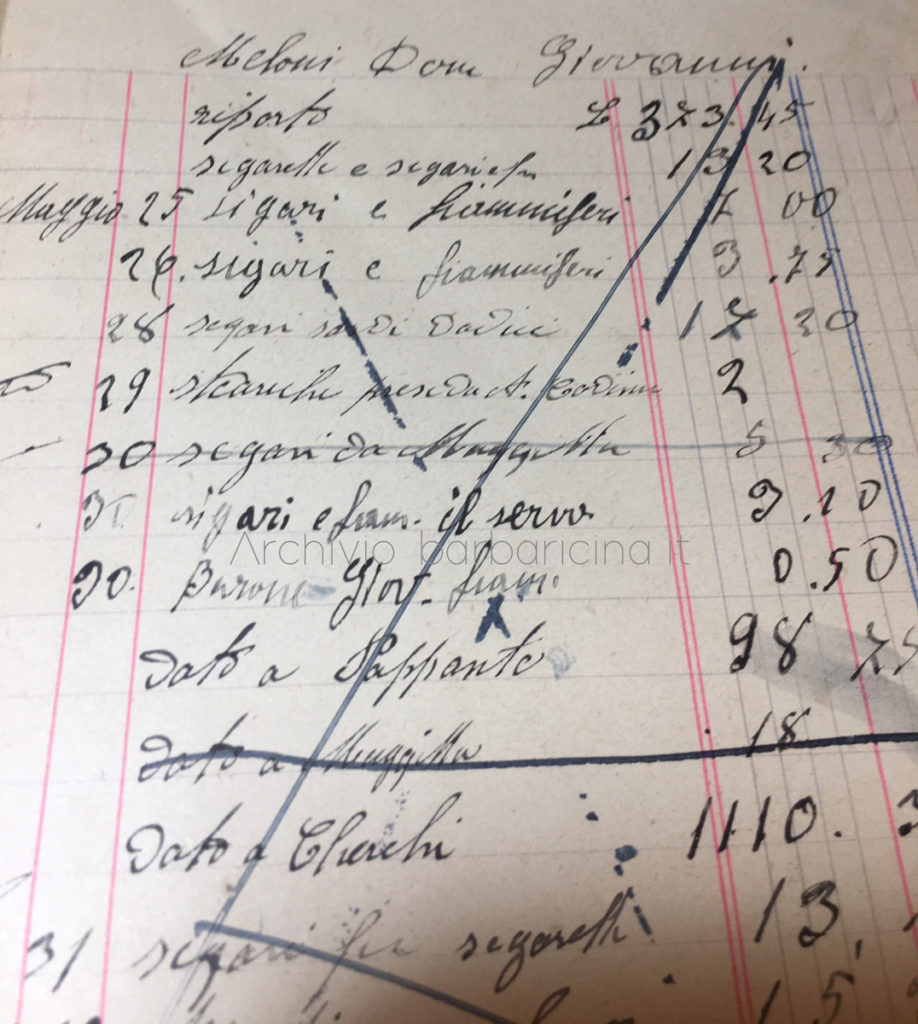 Meloni Don Giovanni.
riporto L 373 45
segarette e segari e fm 13 20
Maggio 25 sigari e fiammiferi 7 00
26. sigari e fiammiferi 3 .75
28 segari sordi dodici 17 20
29 steariche prese da A. 2
30 segari da Muggittu 5 30
30 sigari e fiam. il servo 3 .10
30. Giov. fiam. 0 .50
Dato a Pappante 98 75
Dato a Muggittu 18
Dato a Cherchi 1110. 3
31 segari fm segarette 13,
15,
Archivio barbaricina it